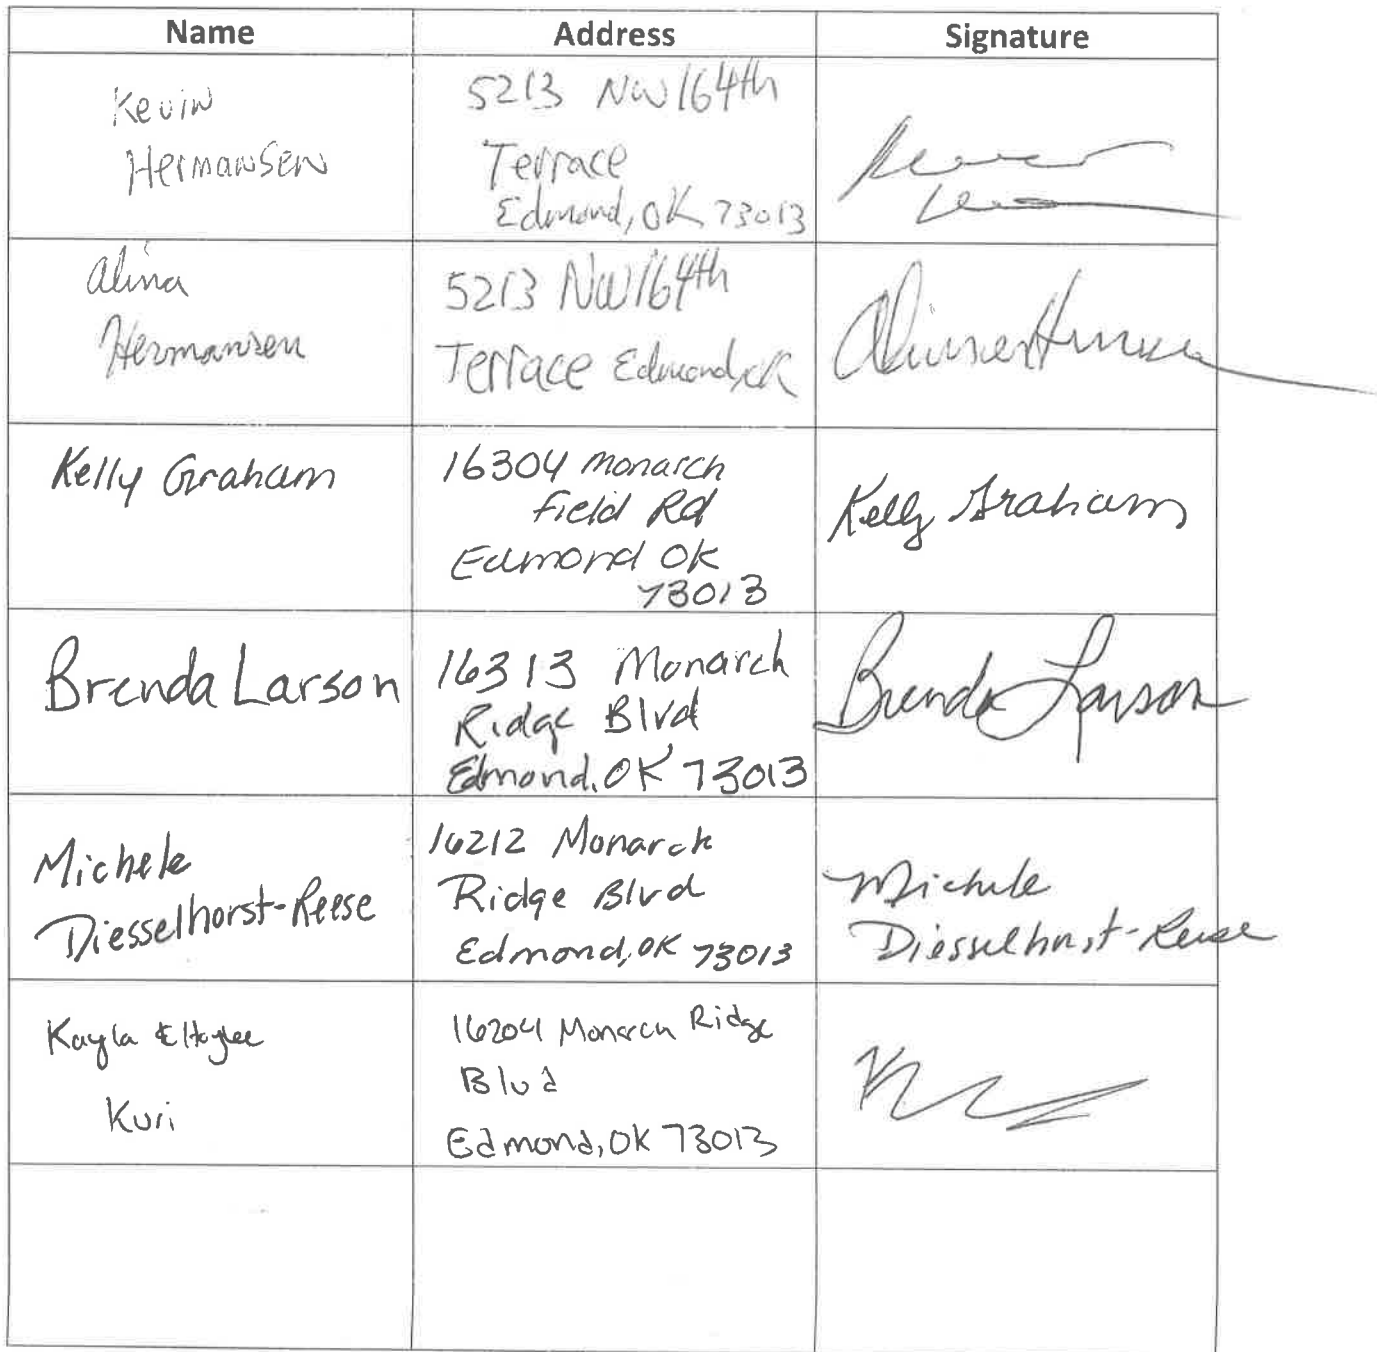 Name Address Signature
Kevin
Hermansen
5213 NW 164th
Terrace
Edmond, OK 73013
Alina
Hermansen
5213 NW 164th
Terrace Edmond, OK
Kelly Graham
16304 Monarch
Field Rd
Edmond OK
73013
Kelly Graham
Brenda Larson
16313 Monarch
Ridge Blvd
Edmond, OK 73013
Brenda Larson
Michele
Diesselhorst-Reese
16212 Monarch
Ridge Blvd
Edmond, OK 73013
Michele
Diesselhorst-Reese
Kayla & Haylee
Kuri
16204 Monarch Ridge
Blvd
Edmond, OK 73013